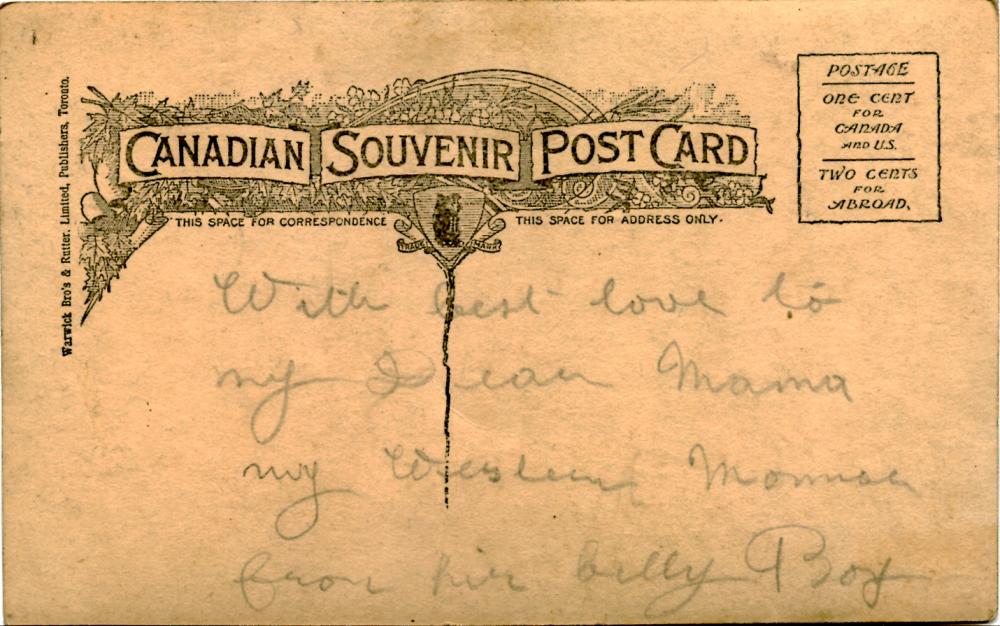 CANADIAN SOUVENIR POST CARD
THIS SPACE FOR CORRESPONDENCE
THIS SPACE FOR ADDRESS ONLY.
TRADE MARK
POSTAGE
ONE CENT
FOR
CANADA
AND U.S.
TWO CENTS
FOR
ABROAD.
Warwick Bro's & Rutter, Limited, Publishers, Toronto.
With best love to
my Dear Mama
my Western
from her billy Boy